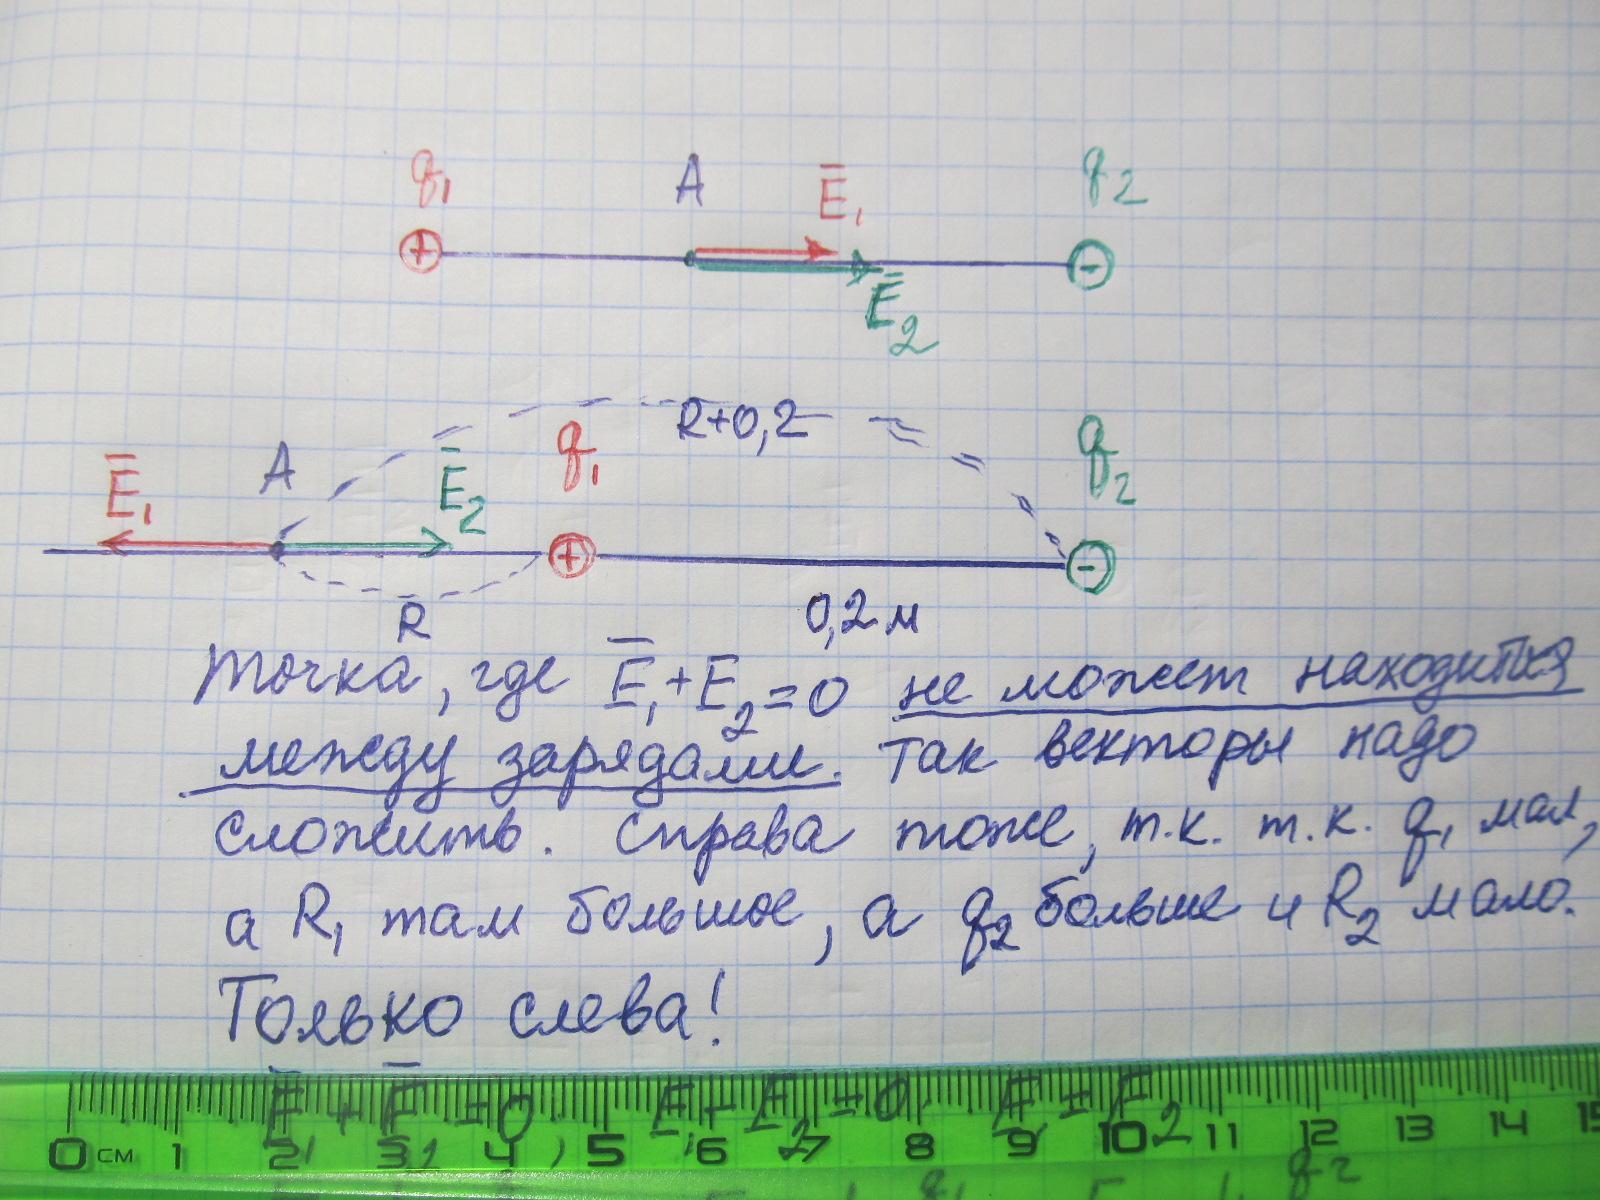 q₁ A E̅₁ q₂
+ -
E̅₂
R+0,2
E̅₁ A E̅₂ q₁ q₂
+ -
R 0,2 м
Точка, где E̅₁+E₂=0 не может находится
между зарядами. Так векторы надо
сложить. Справа тоже, т.к. т.к. q₁ мал,
а R₁ там большое, а q₂ больше и R₂ мало.
Только слева!
E₁-E₂=0 E₁=E₂
0 см 1 2 3 4 5 6 7 8 9 10 11 12 13 14 15
q₁ q₂